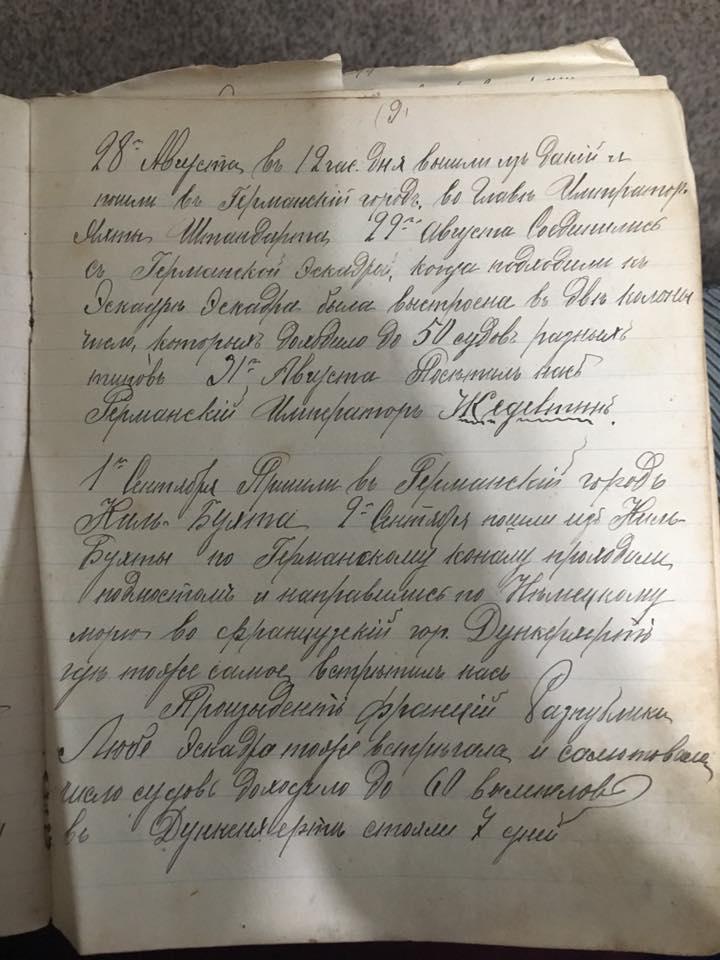 (9)
28го Августа въ 12 час. дня вошли изъ Даній и
пошли въ Германскій городъ, во главѣ Император.
Яхты Штандарта 29го Августа Соединились
съ Германской Эскадрой, когда подходили къ
Эскадрѣ Эскадра была выстроена въ двѣ колоны
число, которыхъ доходило до 50 судовъ разныхъ
типовъ 31го Августа Посѣтилъ насъ
Германскій Императоръ
1го Сентября Пришли въ Германскій городъ
Киль-Бухта 2го Сентября пошли изъ Киль-
Бухты по Германскому каналу проходили
подмостомъ и направились по Нѣмецкому
морю во французскій гор. Дункерхертъ
гдѣ тоже самое встрѣтилъ насъ
Прозыдентъ францій Разпублики
Любе Эскадра тоже встрѣчала и салютовала
число судовъ доходило до 60 вымпловъ
въ стояли 7 дней